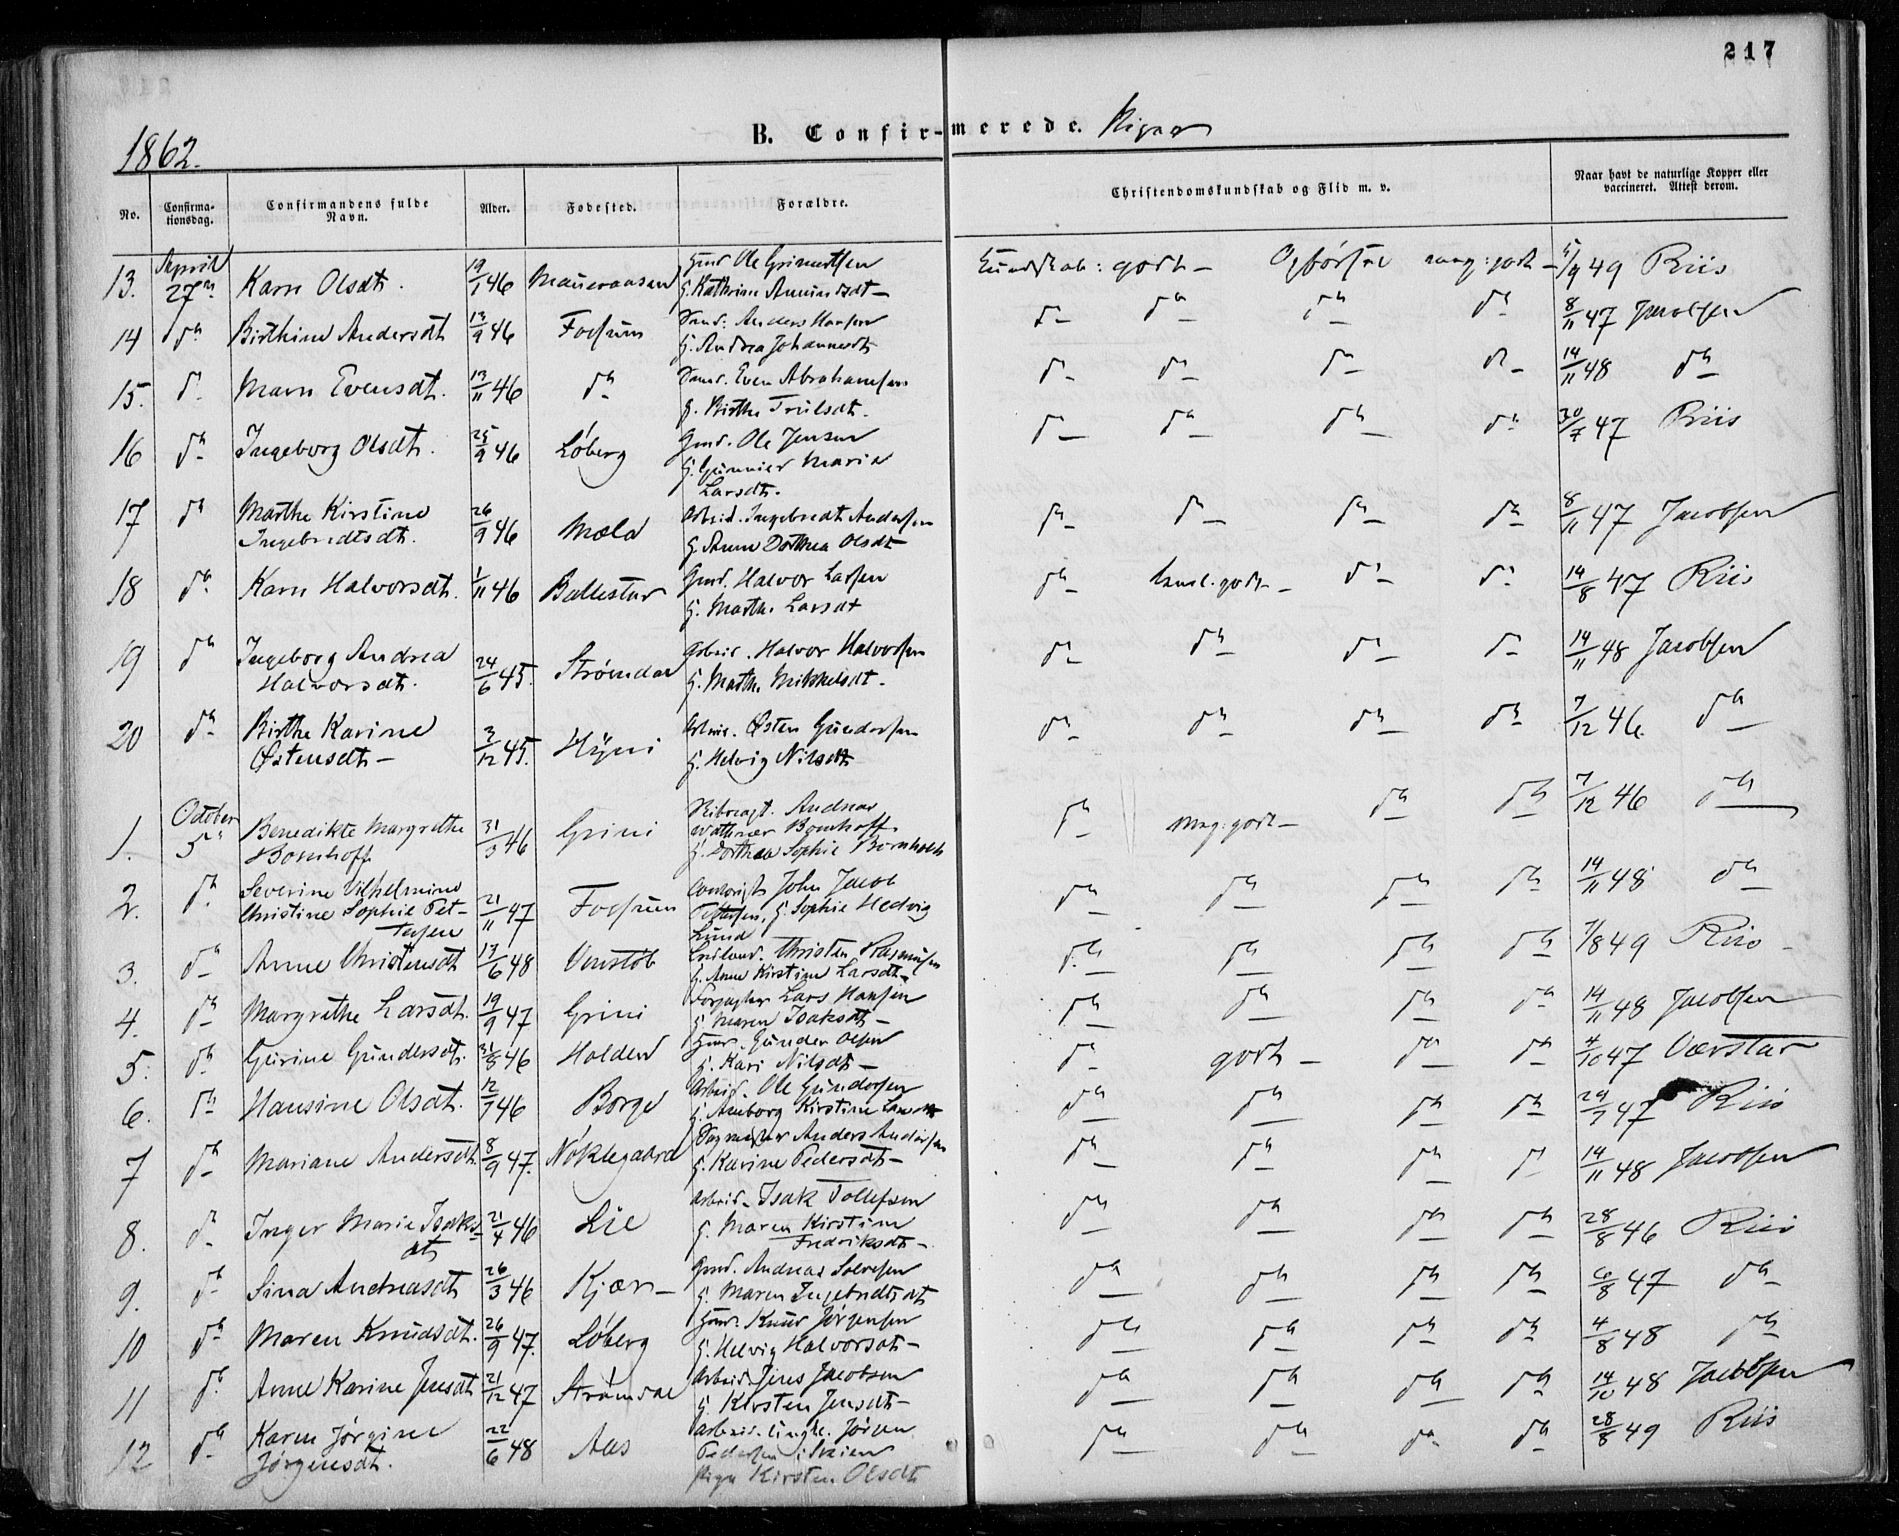 217
1862.
B. Confirmerede. Piger
No. Confirmationsdag. Confirmandens fulde Navn. Alder. Fødested. Forældre. Christendomskundskab og Flid m. v. Naar havt de naturlige Kopper eller vaccineret. Attest derom.
13. April 27de Karn Olsdtr. 19/1 46 Gmd Ole
H. Kathrine Amundsdt Kundskab: godt - Opførsel mag: godt - 5/9 49 Riis
14 do Birthine Andersdt 13/9 46 Fossum Anders Hansen
H. Andrea Johannesdt do do do do 8/11 47 Jacobsen
15. do Maren Evensdt. 13/11 46 do Even Abrahamsen
H. Birthe Trulsdt. do do do do 14/11 48 do
16 do Ingeborg Olsdt. 25/9 46 Løberg Gmd. Ole Jensen
H. Maria
Larsdt. do do do do 30/7 47 Riis
17 do Marthe Kirstine
Ingebredtsdt. 26/9 46 Mæla Arbeid. Ingebredt Andersen
H. Anne Dorthea Olsdt do do do do 8/11 47 Jacobsen
18 do Karn Halvorsdt. 1/11 46 Ballestad Gmd. Halvor Larsen
H. Marthe Larsdt do temel. godt - do do 14/8 47 Riis
19 do Ingeborg Andrea
Halvorsdt. 24/6 45. Strømdal Arbeid. Halvor Halvorsen
H. Marthe Mikkelsdt. do do do do 14/11 48 Jacobsen
20 do Birthe Karine
Østensdt - 3/12 45. Hyni Arbeid. Østen Gundersen
H. Helvig Nilsdt do do do do 7/12 46. do
1. October 5te Benedikte Margrethe
Bomhoff 31/3 46 Grini Andreas
Bomhoff
H. Dorthea Sophie do mag: godt - do do 7/12 46 do
2. do Severine Vilhelmine
Christine Sophie Pet-
tersen 21/11 47 Fossum John Jacob
Pettersen, H. Sophie Hedvig
Lund do do do do 14/11 48 do
3. do Anne Christensdt 13/6 48 Venstøb Christen Rasmusen
H. Anne Kirstine Larsdt. do do do do 7/8 49 Riis
4. do Margrethe Larsdt. 19/9 47 Grini Forpagter Lars Hansen
H. Maren Isaksdt - do do do do 14/11 48 Jacobsen
5. do Gurine Gundersdt. 31/8 46 Holden Gmd. Gunder Olsen
H. Kari Nilsdt - do godt - do do 4/10 47 Værstad
6. do Hansine Olsdt. 12/7 46 Borge Arbeid. Ole Gundersen
H. Anborg Kirstine Larsdt do do do do 29/7 47 Riis
7 do Mariane Andersdt. 8/9 47. Nøklegaard Sagmester Anders Andersen
H. Karine Pedersdt - do do do do 14/11 48 Jacobsen
8. do Inger Marie Isaks-
dt 21/4 46 Lie Arbeid. Isak Tollefsen
H. Maren Kirstine
Fredriksdt - do do do do 28/8 46 Riis
9. do Sina Andreasdt 26/3 46 Kjær - Gmd. Andreas
H. Maren Ingebredtsdt do do do do 6/8 47 do
10 do Maren Knudsdt. 26/9 47. Løberg Gmd. Knud Jørgensen
H. Helvig Halvorsdt - do do do do 4/8 48 do
11 do Anne Karine Jensdt 21/12 47 Strømdal Arbeid. Jens Jacobsen
H. Kirsten Jensdt - do do do do 14/10 48 Jacobsen
12 do Karen Jørgine
Jørgensdt. 22/6 48 Aas Arbeid. Ungk. Jørgen
Pedersen,
Pige Kirsten Olsdt do do do do 28/8 49 Riis